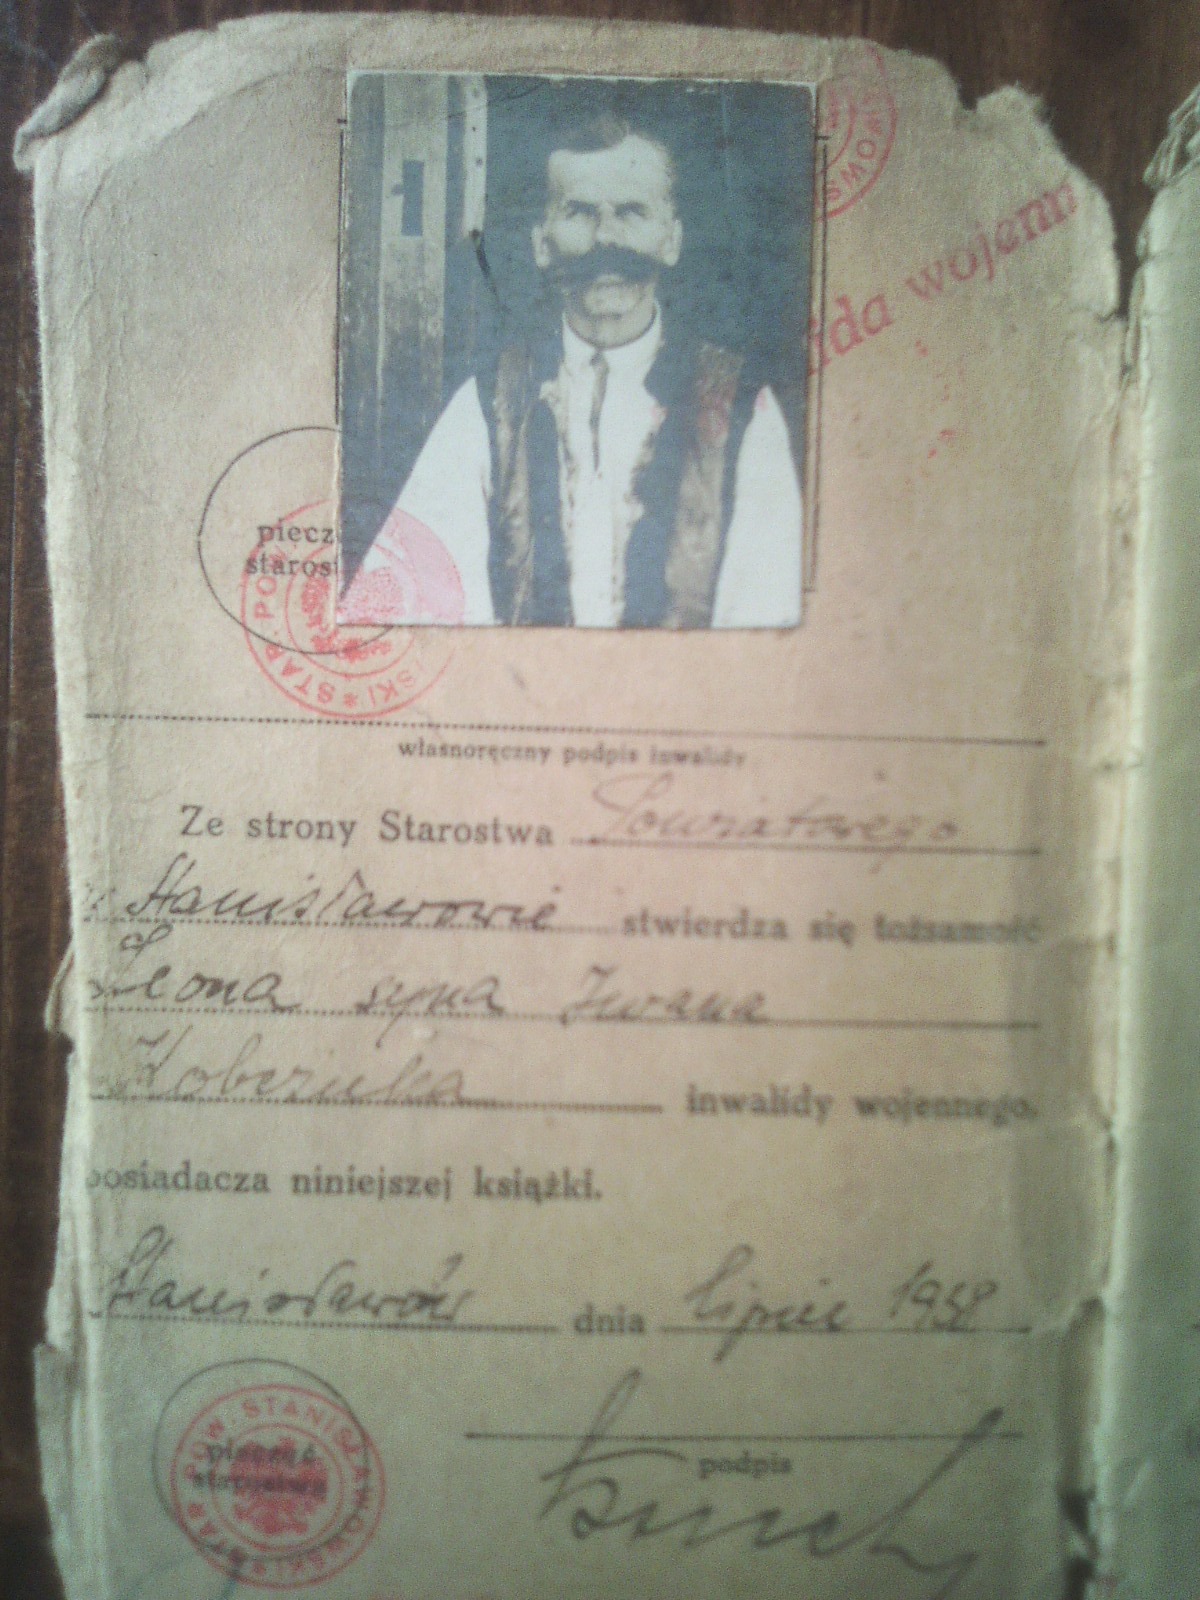 WOWS
ida wojenn
piecz
staros
STAR. POW. SKI
własnoręczny podpis inwalidy
Ze strony Starostwa Powiatowego
w Stanisławowie stwierdza się tożsamość
Leona syna Iwana
inwalidy wojennego,
posiadacza niniejszej książki.
Stanisławów dnia lipiec 1938
podpis
pieczęć
starostwa
STAR. POW. STANISŁAWOWSKI